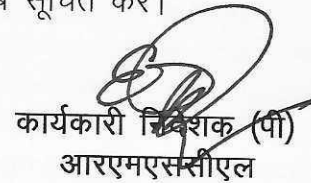 सूचित करें।
कार्यकारी निदेशक (पी)
आरएमएससीएल